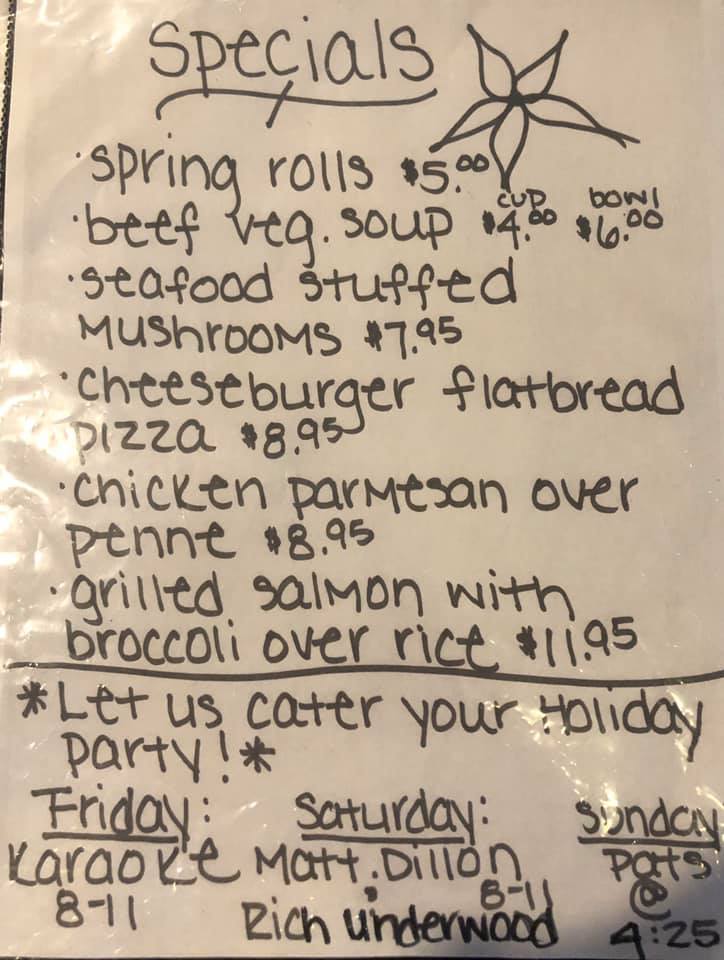 Specials
·spring rolls $5.00
·beef veg. soup cup $4.00 bowl $6.00
·seafood stuffed
mushrooms $7.95
·cheeseburger flatbread
pizza $8.95
·chicken parmesan over
penne $8.95
·grilled salmon with
broccoli over rice $11.95
*Let us cater your Holiday
party!*
Friday: Saturday: Sunday
Karaoke Matt Dillon Pats
8-11 8-11 @
Rich Underwood 4:25